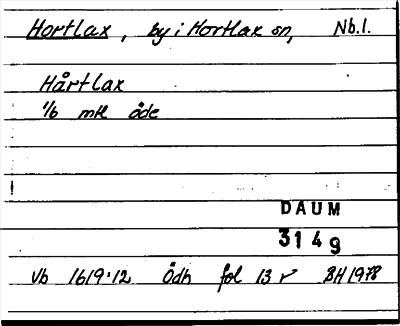 Hortlax, by i Hortlax sn, Nb.l.
Hårtlax
1/6 mtl öde
DAUM
3149
Vb 1619:12 Ödh fol 13 r BH 1978